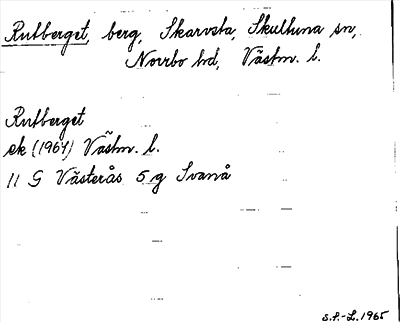 Rutberget, berg, Skarvsta, Skultuna sn,
Norrbo hd, Västm. l.
Rutberget
ek (1964) Västm. l.
11 G Västerås 5 g Svanå
S.F.-L. 1965